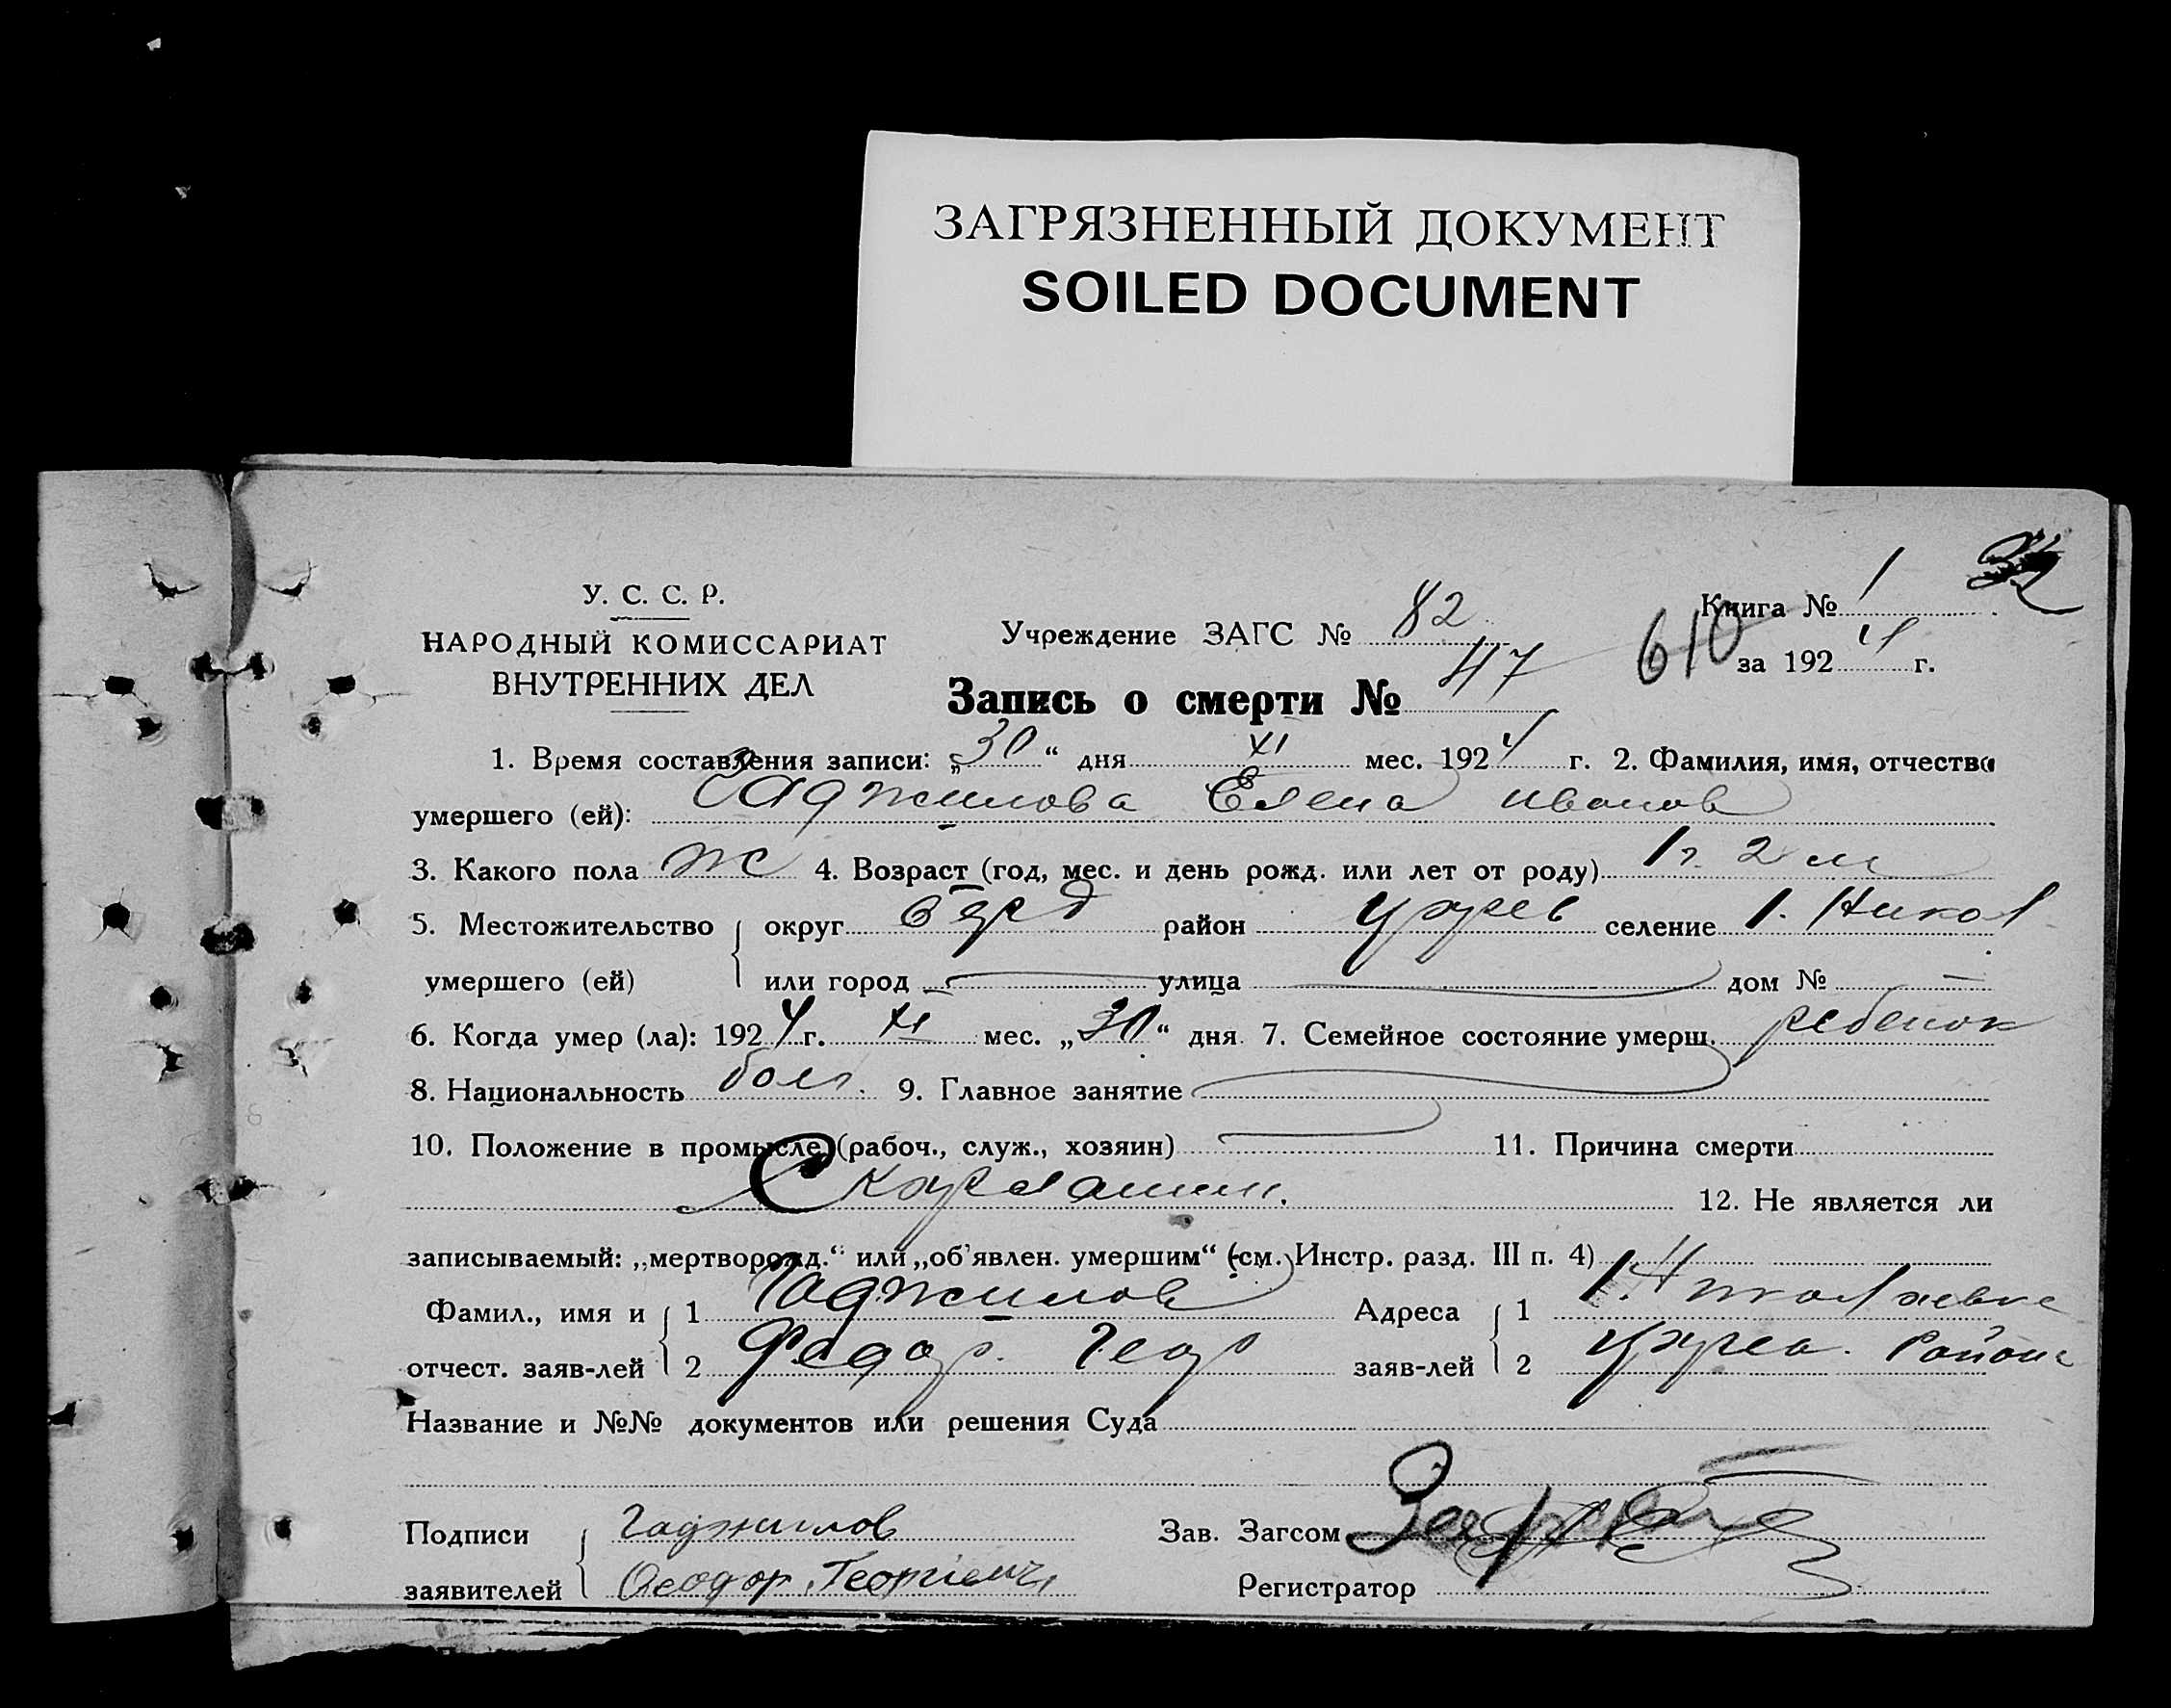 ЗАГРЯЗНЕННЫЙ ДОКУМЕНТ
SOILED DOCUMENT
У. С. С. Р.
НАРОДНЫЙ КОМИССАРИАТ
ВНУТРЕННИХ ДЕЛ
Учреждение ЗАГС № 82
Книга № 1
610
за 1924 г.
Запись о смерти № 47
1. Время составления записи: „30“ дня XI мес. 1924 г. 2. Фамилия, имя, отчество
умершего (ей): Гаджилова Елена Иванов
3. Какого пола ж 4. Возраст (год, мес. и день рожд. или лет от роду) 1 г. 2 м
5. Местожительство округ район селение 1. Никол
умершего (ей) или город — улица — дом № —
6. Когда умер (ла): 1924 г. XI мес. „30“ дня 7. Семейное состояние умерш. ребенок
8. Национальность болг. 9. Главное занятие —
10. Положение в промысле (рабоч., служ., хозяин) — 11. Причина смерти
Скарлатин. 12. Не является ли
записываемый: „мертворожд.“ или „об'явлен. умершим“ (см. Инстр. разд. III п. 4)
Фамил., имя и 1 Гаджилов Адреса 1 1. Николаевке
отчест. заяв-лей 2 Федор. Геор заяв-лей 2 Района
Название и №№ документов или решения Суда
Подписи Гаджилов Зав. Загсом
заявителей Феодор Георгіевич Регистратор